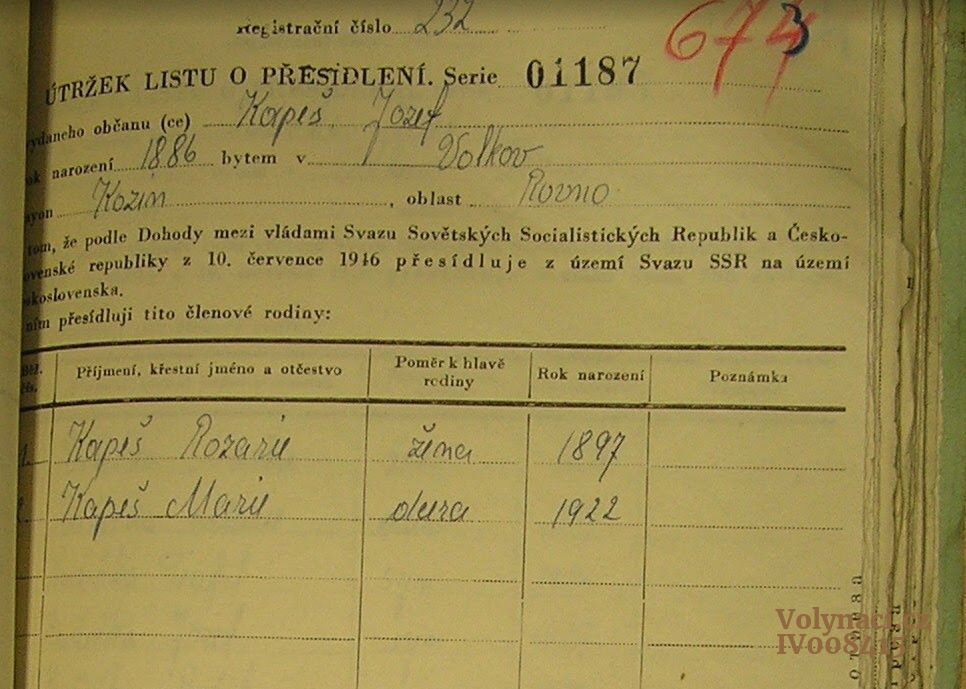 Registrační číslo 232
674 3
ÚTRŽEK LISTU O PŘESÍDLENÍ. Serie 01187
ydaného občanu (ce) Kapeš Jozef
ok narození 1886 bytem v Volkov
ayon Kozin, oblast Rovno
tom, že podle Dohody mezi vládami Svazu Sovětských Socialistických Republik a Česko-
ovenské republiky z 10. července 1946 přesídluje z území Svazu SSR na území
skoslovenska.
ním přesídlují tito členové rodiny:
Příjmení, křestní jméno a otčestvo Poměr k hlavě rodiny Rok narození Poznámka
Kapeš Rozarie žena 1897
Kapeš Marie dcera 1922
Volynaci.cz